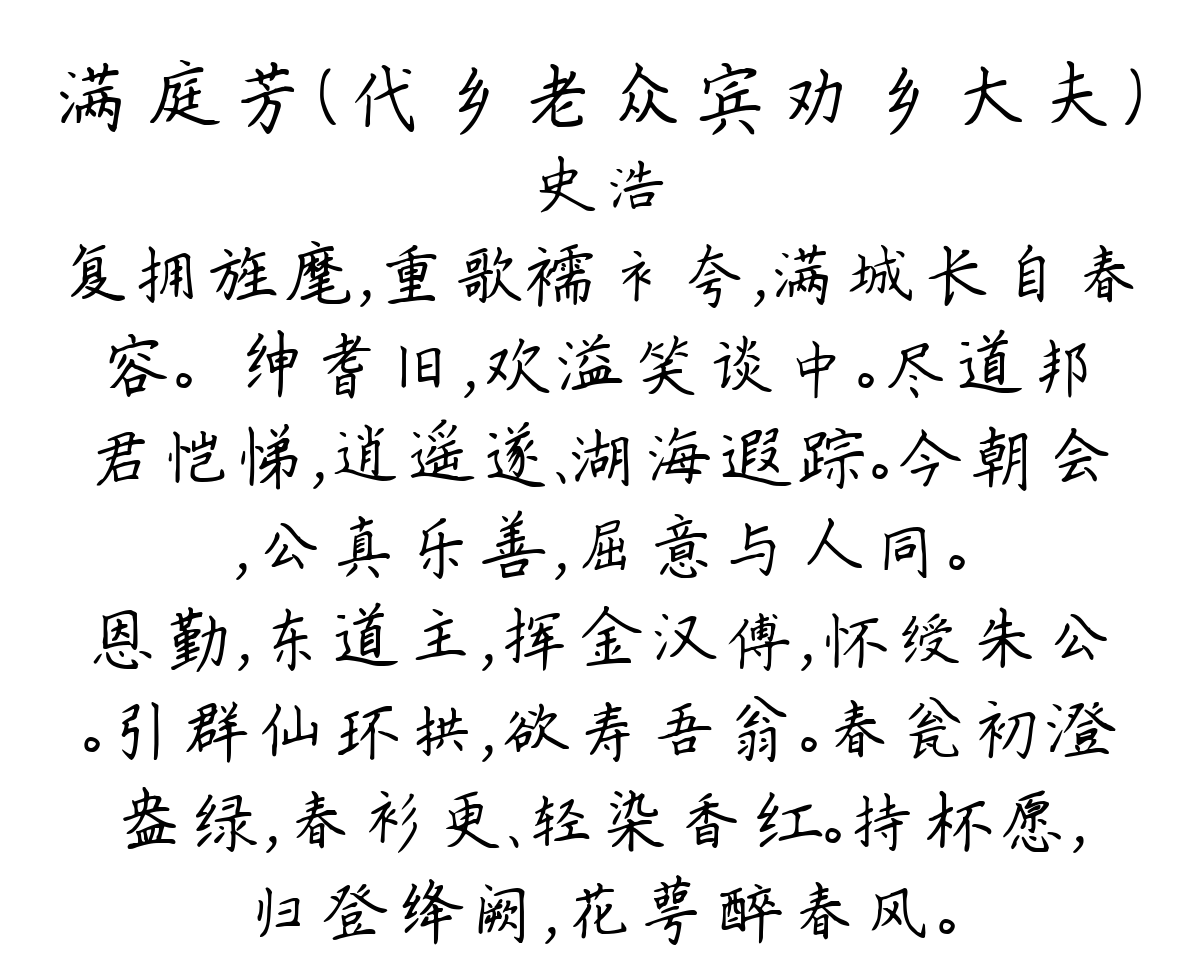 满庭芳(代乡老众宾劝乡大夫)
史浩
复拥旌麾,重歌襦衤夸,满城长自春
容。绅耆旧,欢溢笑谈中。尽道邦
君恺悌,逍遥遂、湖海遐踪。今朝会
,公真乐善,屈意与人同。
恩勤,东道主,挥金汉傅,怀绶朱公
。引群仙环拱,欲寿吾翁。春瓮初澄
盎绿,春衫更、轻染香红。持杯愿,
归登绛阙,花萼醉春风。